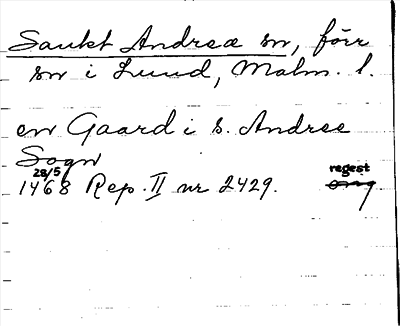 Sankt Andreæ sn, förr
sn i Lund, Malm. l.
en Gaard i S. Andree
Sogn
28/5 regest
1468 Rep. II nr 2429. orig